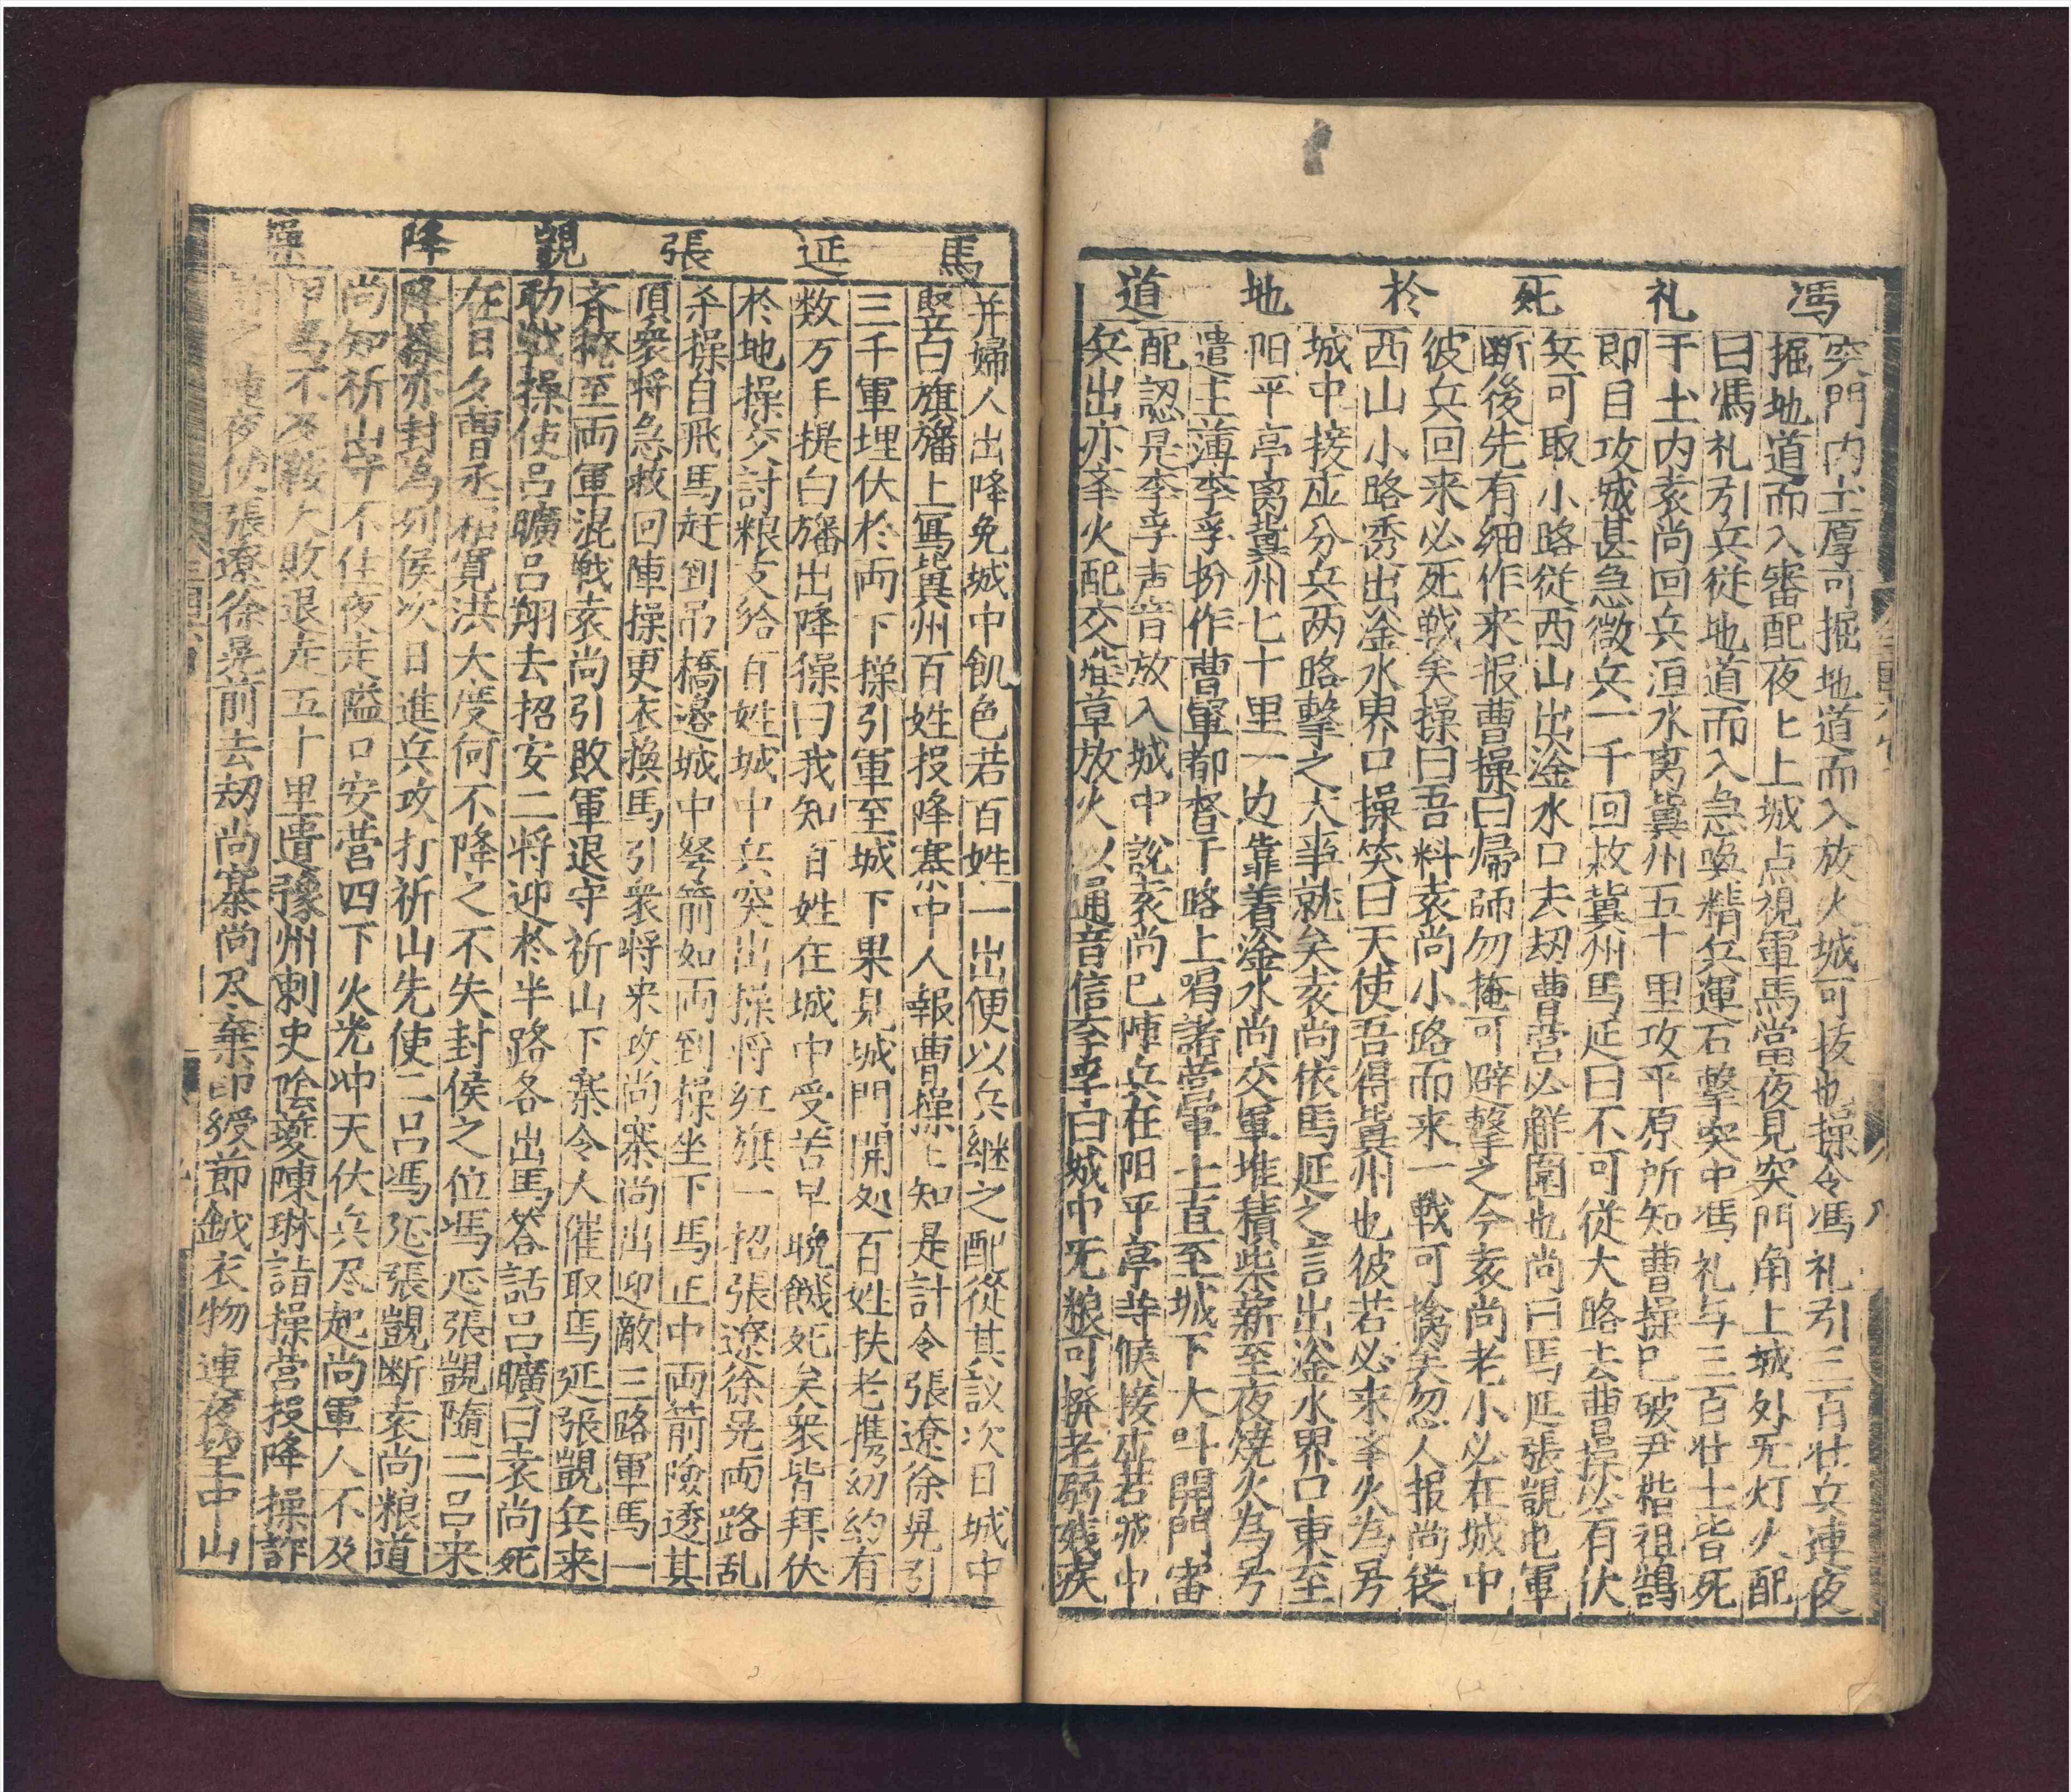 馮礼死於地道
突門内土厚可掘地道而入放火城可拔也操令馮礼引三百壮兵連夜
掘地道而入審配夜匕上城点視軍馬當夜見突門角上城外旡灯火配
曰馮礼引兵従地道而入急喚精兵運石擊突中馮礼与三百壮士皆死
于土内袁尚回兵洹水离冀州五十里攻平原所知曹操已破尹楷祖鵠
即目攻城甚急徵兵一千回救冀州馬延曰不可従大路去曹操必有伏
兵可取小路従西山出淦水口去刼曹营必解圍也尚曰馬延張覬也軍
断後先有细作来报曹操曰帰師勿掩可避擊之今袁尚老小必在城中
彼兵回来必死戦矣操曰吾料袁尚小路而来一戰可擒矣忽人报尚従
西山小路秀出淦水界口操笑曰天使吾得冀州也彼若必来夆火為号
城中接应分兵两略擊之大事就矣袁尚依馬延之言出淦水界口東至
阳平亭离冀州七十里一边靠着淦水尚交軍堆積柴薪至夜燒火為号
遣主薄李孚扮作曹軍都督于略上唱諸营軍士直至城下大叫開門審
配認是李孚声音放入城中說袁尚已陣兵在阳平亭等候接应若城中
兵出亦夆火配交堆草放火以通音信李孚曰城中旡粮可撥老弱残疾
馬延張覬降操
并婦人出降免城中飢色若百姓一出便以兵継之配從其议次日城中
竪白旗旛上寫冀州百姓投降寨中人報曹操匕知是計令張遼徐晃引
三千軍埋伏於两下操引軍至城下果見城門開处百姓扶老携幼約有
数万手提白旛出降操曰我知百姓在城中受苦早晚餓死矣衆皆拜伏
於地操交討粮支給百姓城中兵突出操将红旗一招張遼徐晃两路乱
杀操自飛馬赶到吊橋邊城中弩箭如雨到操坐下馬正中两箭險透其
頂衆将急救回陣操更衣换馬引衆将来攻尚寨尚出迎敵三路軍馬一
斉掩至两軍混戦袁尚引敗軍退守祈山下寨令人催取馬延張覬兵来
助战操使吕曠吕翔去招安二将迎於半路各出馬答話吕曠曰袁尚死
在日夕曹丞相寬洪大度何不降之不失封侯之位馮延張覬隨二吕来
降操亦封為列侯次日進兵攻打祈山先使二吕馮延張覬断袁尚粮道
尚知祈山守不住夜走隘口安营四下火光冲天伏兵尽起尚軍人不及
甲馬不及鞍大敗退走五十里遣豫州刺史陰夔陳琳詣操营投降操詐
許之連夜使張遼徐晃前去刼尚寨尚尽棄印綬節鉞衣物連夜望中山